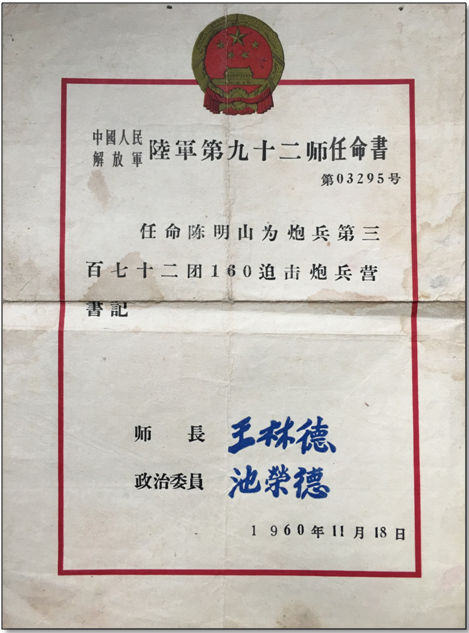 中國人民解放軍 陸軍第九十二师任命書
第03295号
任命陈明山为炮兵第三
百七十二团160迫击炮兵营
書記
师 長 王林德
政治委員 池榮德
1960年11月18日